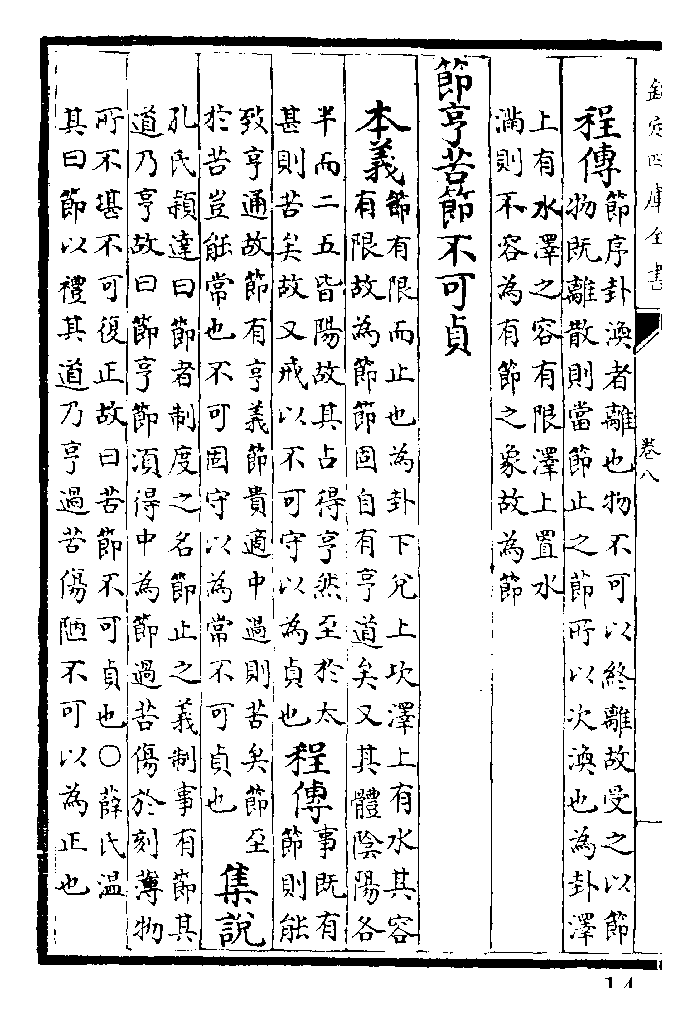 欽定四庫全書
卷八
程傳節序卦渙者離也物不可以終離故受之以節
物既離散則當節止之節所以次渙也為卦澤
上有水澤之容有限澤上置水
滿則不容為有節之象故為節
節亨苦節不可貞
本義節有限而止也為卦下兌上坎澤上有水其容
有限故為節節固自有亨道矣又其體陰陽各
半而二五皆陽故其占得亨然至於太
甚則苦矣故又戒以不可守以為貞也
程傳事既有
節則能
致亨通故節有亨義節貴適中過則苦矣節至
於苦豈能常也不可固守以為常不可貞也
集說
孔氏穎達曰節者制度之名節止之義制事有節其
道乃亨故曰節亨節須得中為節過苦傷於刻薄物
所不堪不可復正故曰苦節不可貞也〇薛氏溫
其曰節以禮其道乃亨過苦傷陋不可以為正也
14